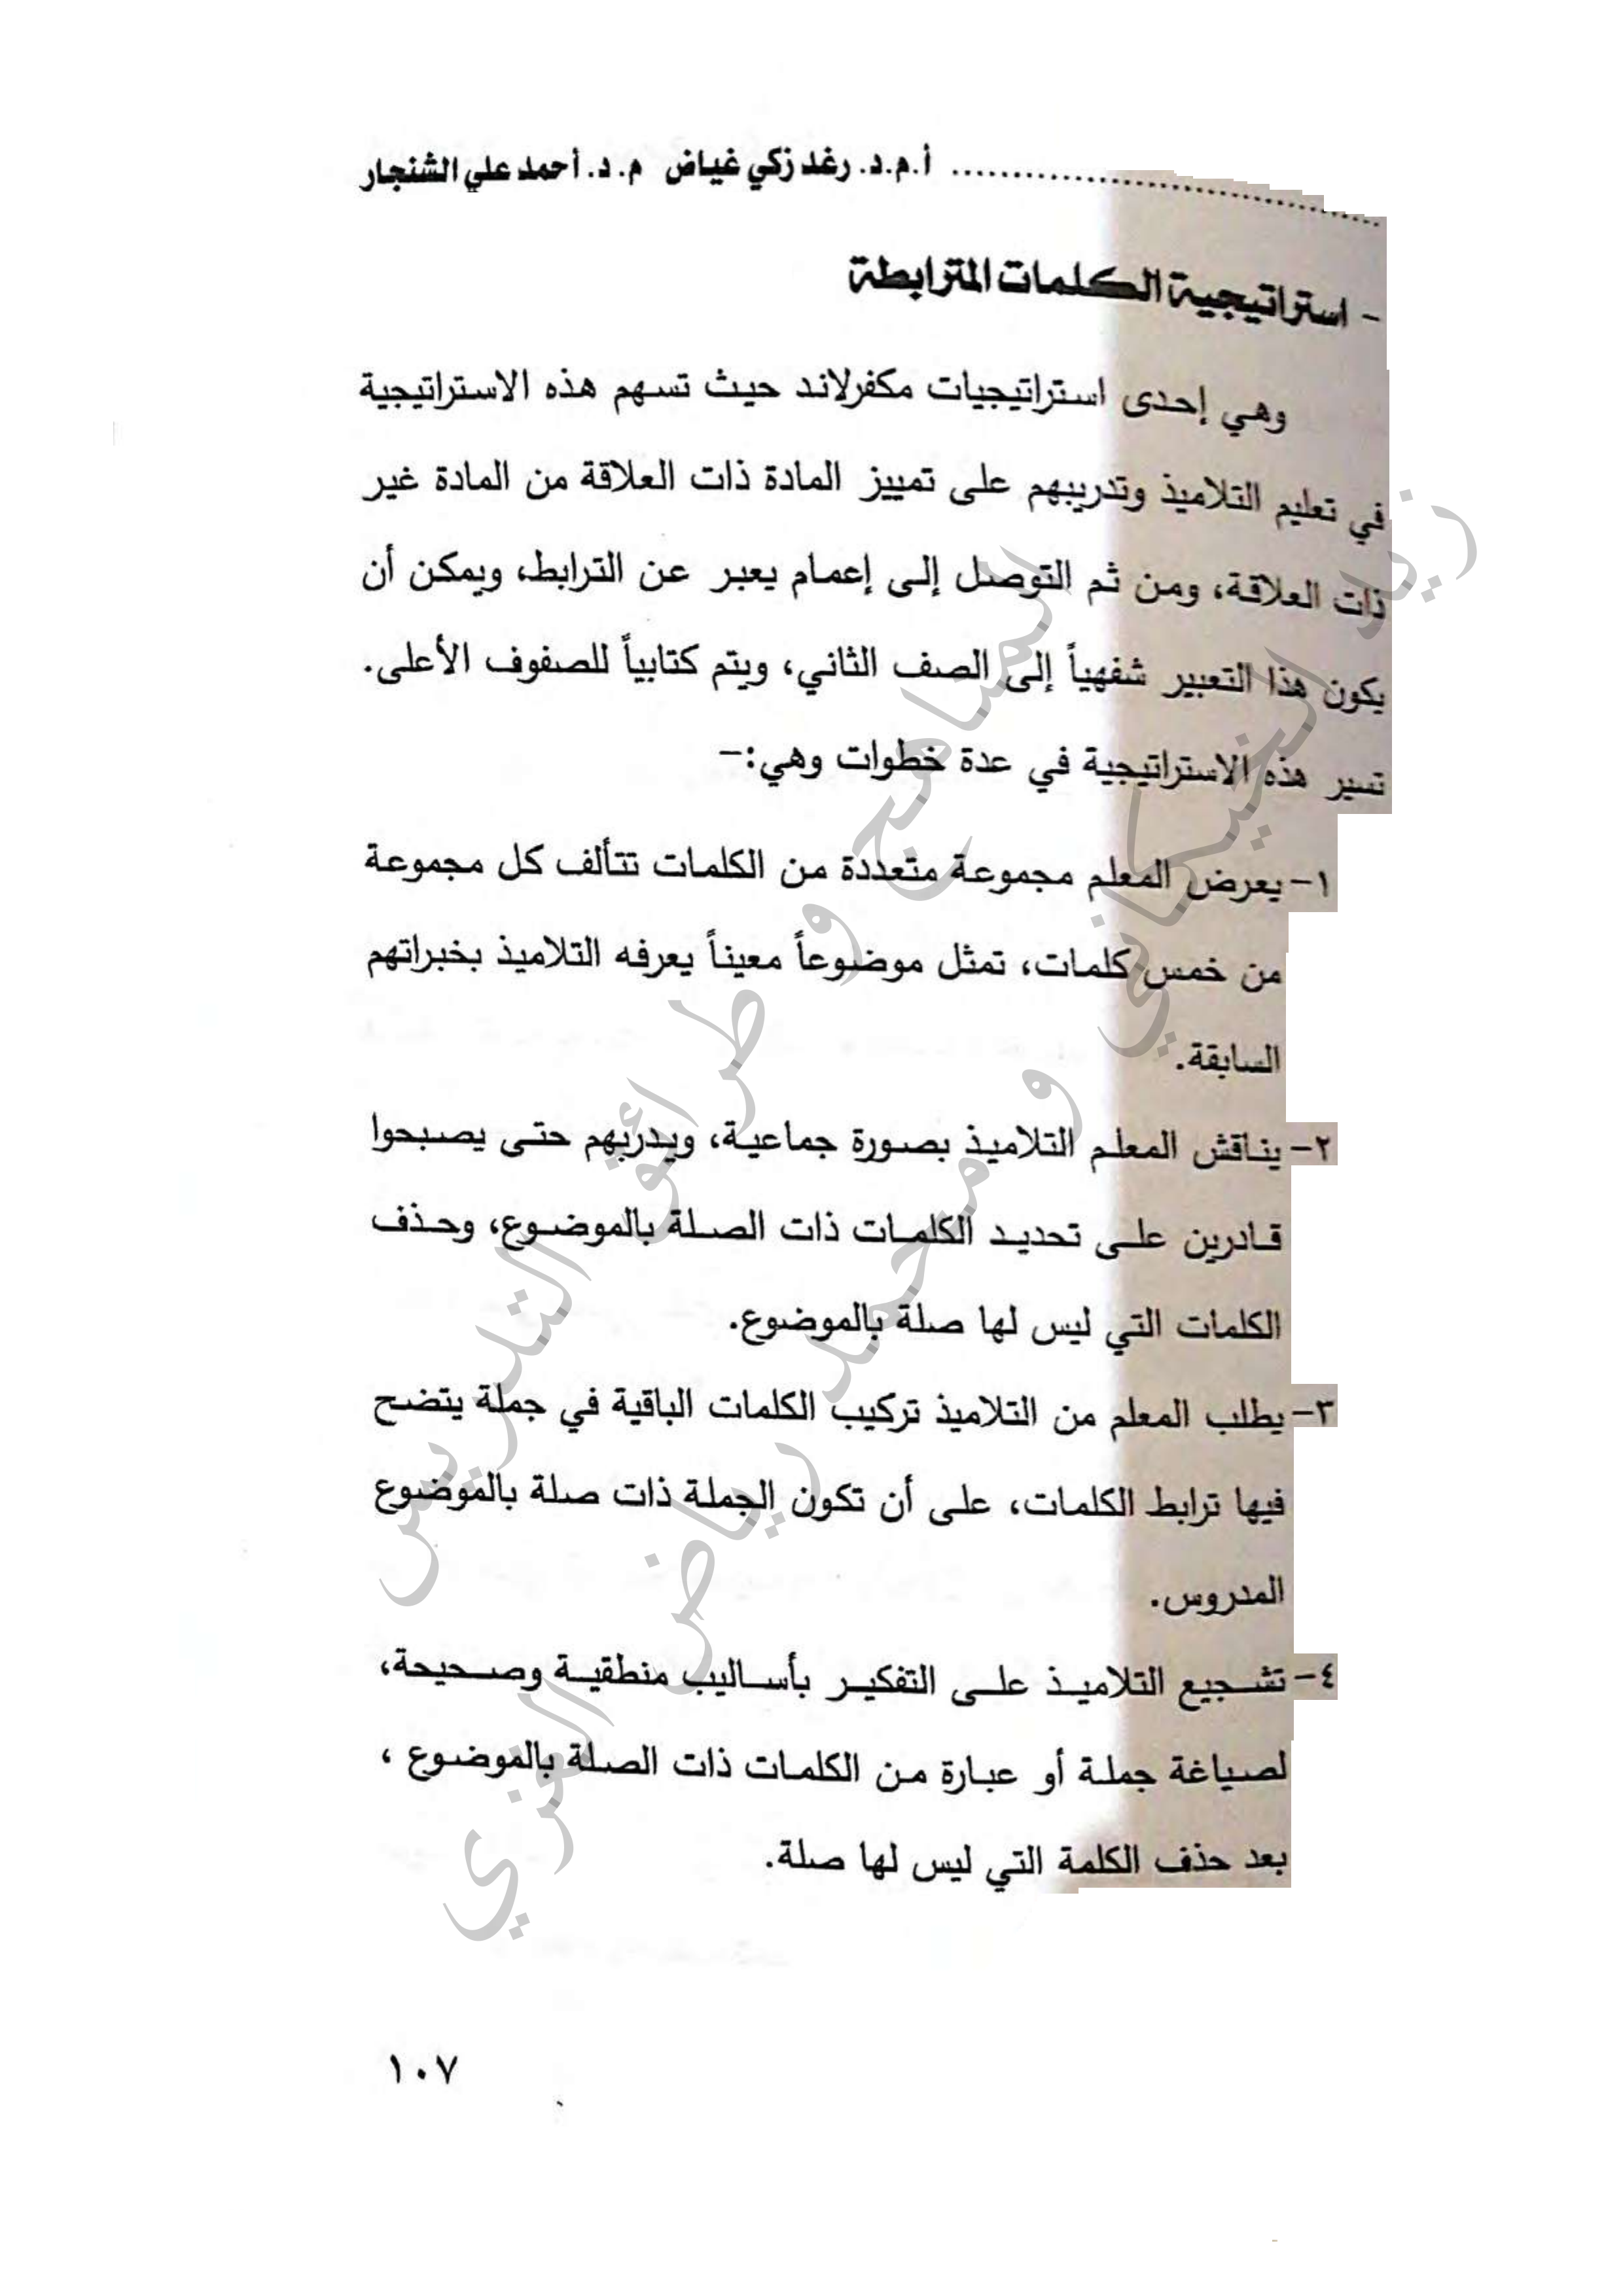 أ.م.د. رغد زكي غياض م. د. أحمد علي الشنجار
- استراتيجية الكلمات المترابطة
وهي إحدى استراتيجيات مكفرلاند حيث تسهم هذه الاستراتيجية
في تعليم التلاميذ وتدريبهم على تمييز المادة ذات العلاقة من المادة غير
ذات العلاقة، ومن ثم التوصل إلى إعمام يعبر عن الترابط، ويمكن أن
يكون هذا التعبير شفهياً إلى الصف الثاني، ويتم كتابياً للصفوف الأعلى.
تسير هذه الاستراتيجية في عدة خطوات وهي:-
١- يعرض المعلم مجموعة متعددة من الكلمات تتألف كل مجموعة
من خمس كلمات، تمثل موضوعاً معيناً يعرفه التلاميذ بخبراتهم
السابقة.
٢- يناقش المعلم التلاميذ بصورة جماعية، ويدربهم حتى يصبحوا
قادرين على تحديد الكلمات ذات الصلة بالموضوع، وحذف
الكلمات التي ليس لها صلة بالموضوع.
٣- يطلب المعلم من التلاميذ تركيب الكلمات الباقية في جملة يتضح
فيها ترابط الكلمات، على أن تكون الجملة ذات صلة بالموضوع
المدروس.
٤- تشجيع التلاميذ على التفكير بأساليب منطقية وصحيحة،
لصياغة جملة أو عبارة من الكلمات ذات الصلة بالموضوع ،
بعد حذف الكلمة التي ليس لها صلة.
١٠٧
المناهج و طرائق التدريس
زيد الخيكاني و محمد رياض العنزي